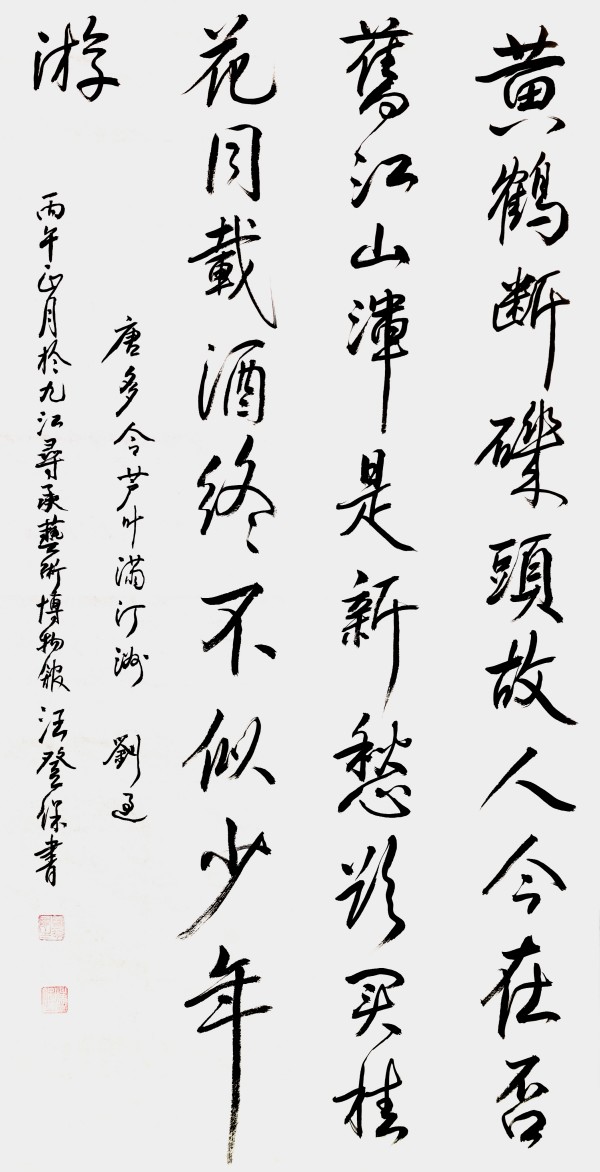 黄鶴断磯頭故人今在否
舊江山渾是新愁欲买桂
花同載酒終不似少年
游
唐多令芦叶滿汀洲 劉过
丙午正月於九江尋承藝術博物館汪登保書